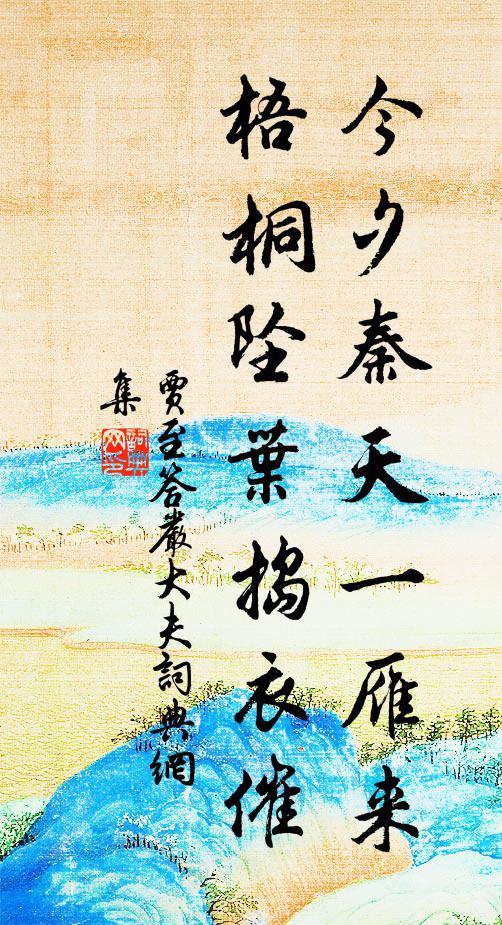 今夕秦天一雁来
梧桐坠葉搗衣催
賈至答嚴大夫詞典網
集